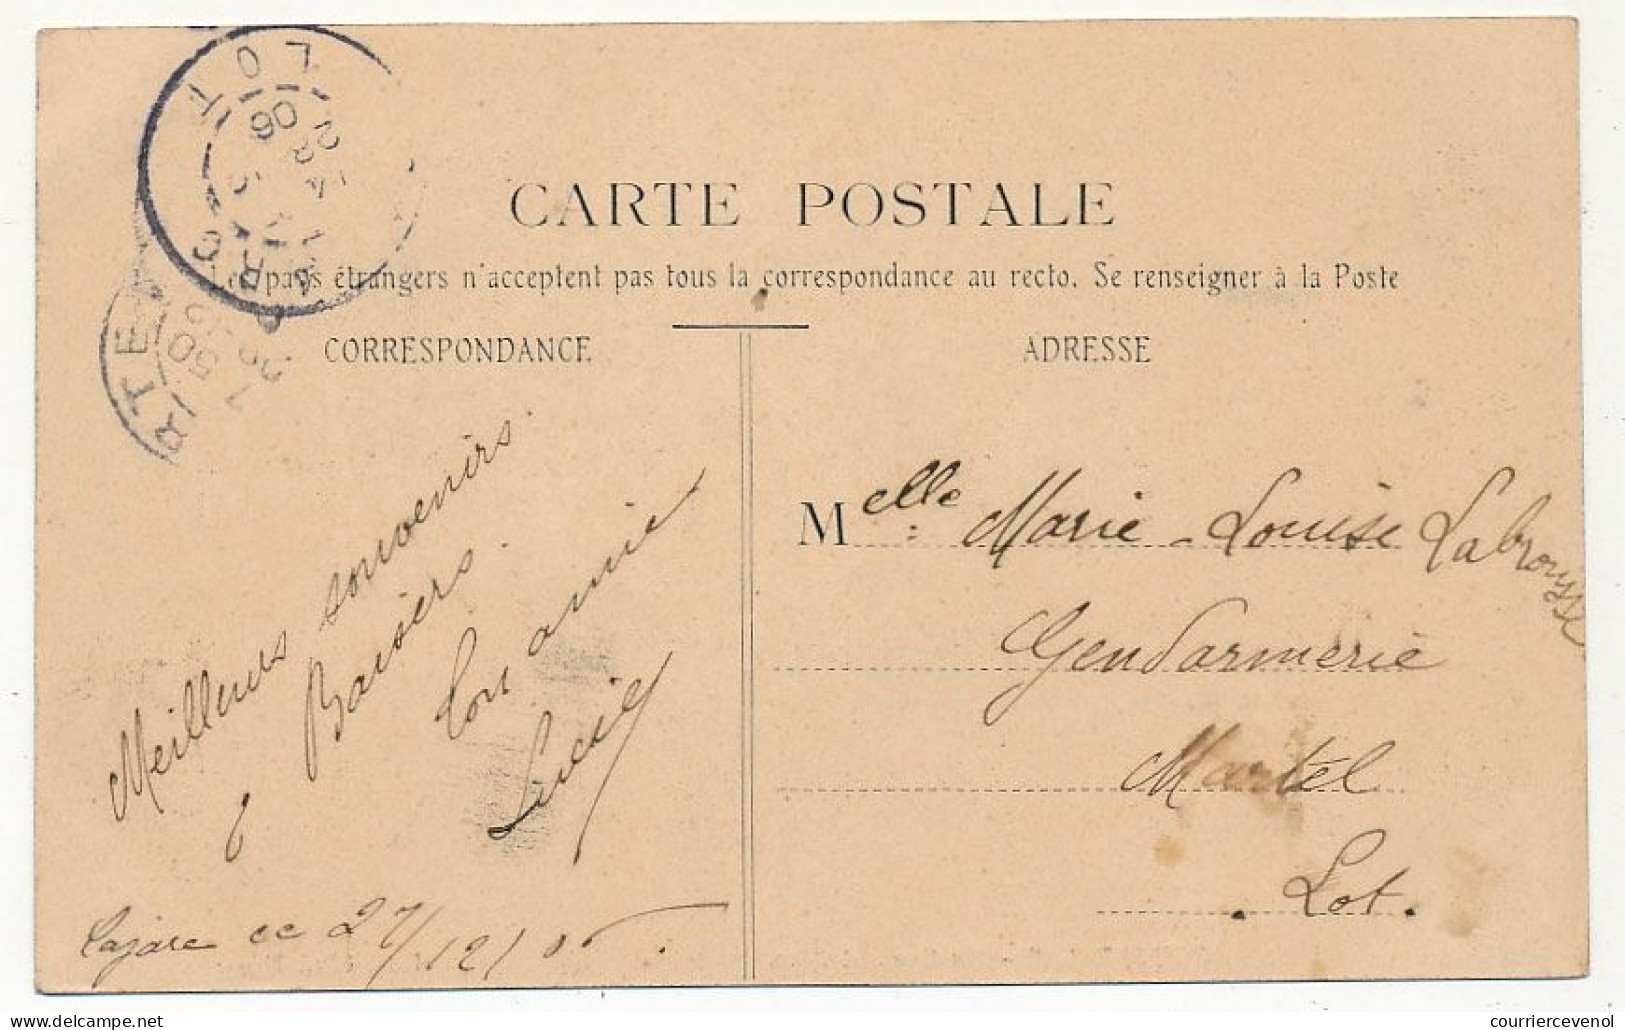 LOT
06
28
CARTE POSTALE
Les pays étrangers n'acceptent pas tous la correspondance au recto. Se renseigner à la Poste
CORRESPONDANCE
Meilleurs souvenirs.
Baisers.
Ton amie
Lucie
Cajarc ce 27/12/06.
ADRESSE
Melle Marie-Louise Labrousse
Gendarmerie
Martel
Lot.
delcampe.net
courriercevenol